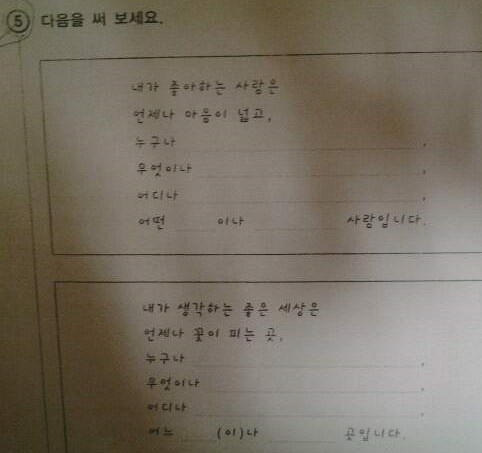 5 다음을 써 보세요.
내가 좋아하는 사람은
언제나 마음이 넓고,
누구나 ,
무엇이나 ,
어디나 ,
어떤 이나 사람입니다.
내가 생각하는 좋은 세상은
언제나 꽃이 피는 곳,
누구나 ,
무엇이나 ,
어디나 ,
어느 (이)나 곳입니다.